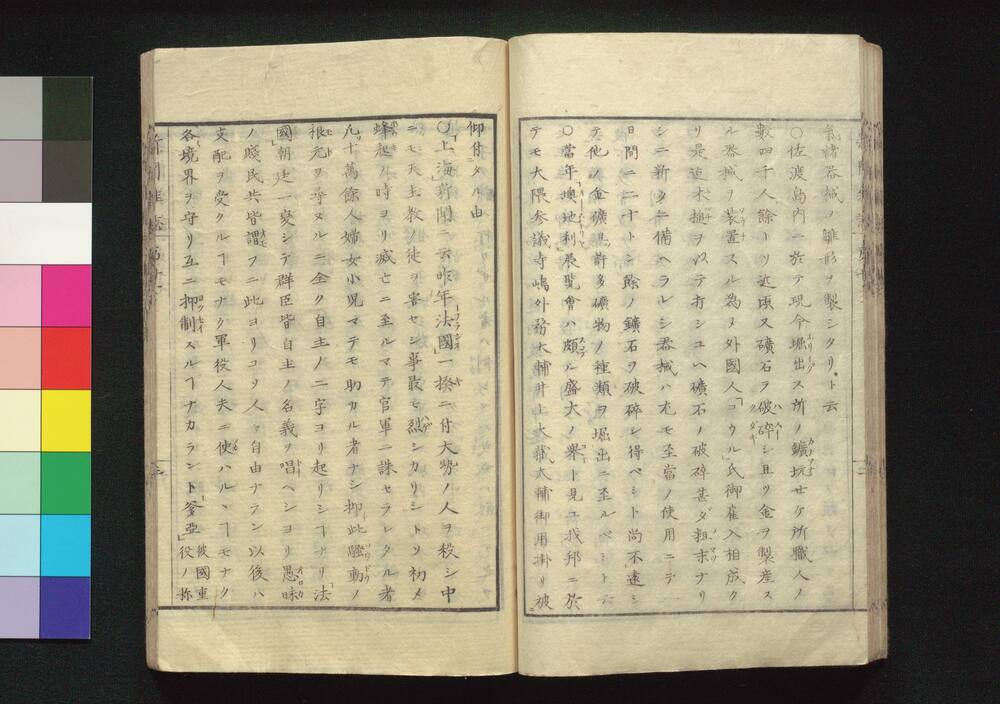 氣緒器械ノ雛形ヲ製シタリ、ト云
〇佐渡島内ニ於テ現今堀出ス所ノ鑛坑廿ケ所職人ノ
數四千人餘トゾ近頃又礦石ヲ破碎シ且ツ金ヲ製産ス
ル器械ヲ装置スル為メ外國人「コウル」氏御雇入相成タ
リ是迄木搥ヲ以テ打シユヘ礦石ノ破碎甚ダ粗末ナリ
シニ新タニ備ヘラレシ器械ハ尤モ至當ノ使用ニテ一
日間ニ二十トン餘ノ鑛石ヲ破碎シ得ベシト尚不遠シ
テ他ノ金礦並許多礦物ノ種類ヲ堀出ニ至ルベシト云
〇當年「澳地利」展覧會ハ頗ル盛大ノ舉ト見ヱ我邦ニ於
テモ大隈参議寺嶋外務大輔井上大藏大輔御用掛リ被
仰付タル由
〇「上海」新聞ニ云昨年「法國」一揆ニ付大勢ノ人ヲ殺シ中
ニモ天主教ノ徒ヲ害セシ事最モ烈シカリシトソ初メ
蜂起ノ時ヨリ滅亡ニ至ルマテ官軍ニ誅セラレタル者
凡ソ十萬餘人婦女小児マテモ助カル者ナシ抑此騒動ノ
根元ヲ尋ヌルニ全ク自主ノ二字ヨリ起リシヿナリ「法
國」朝廷一変シテ群臣皆自主ノ名義ヲ唱ヘシヨリ愚昧
ノ賤民共皆謂フニ此ヨリコソ人々自由ナラン以後ハ
支配ヲ受クルヿモナク軍役人夫ニ使ハルヽヿモナク
各境界ヲ守リ互ニ抑制スルヿナカラント「釜亞」彼國重
役ノ称